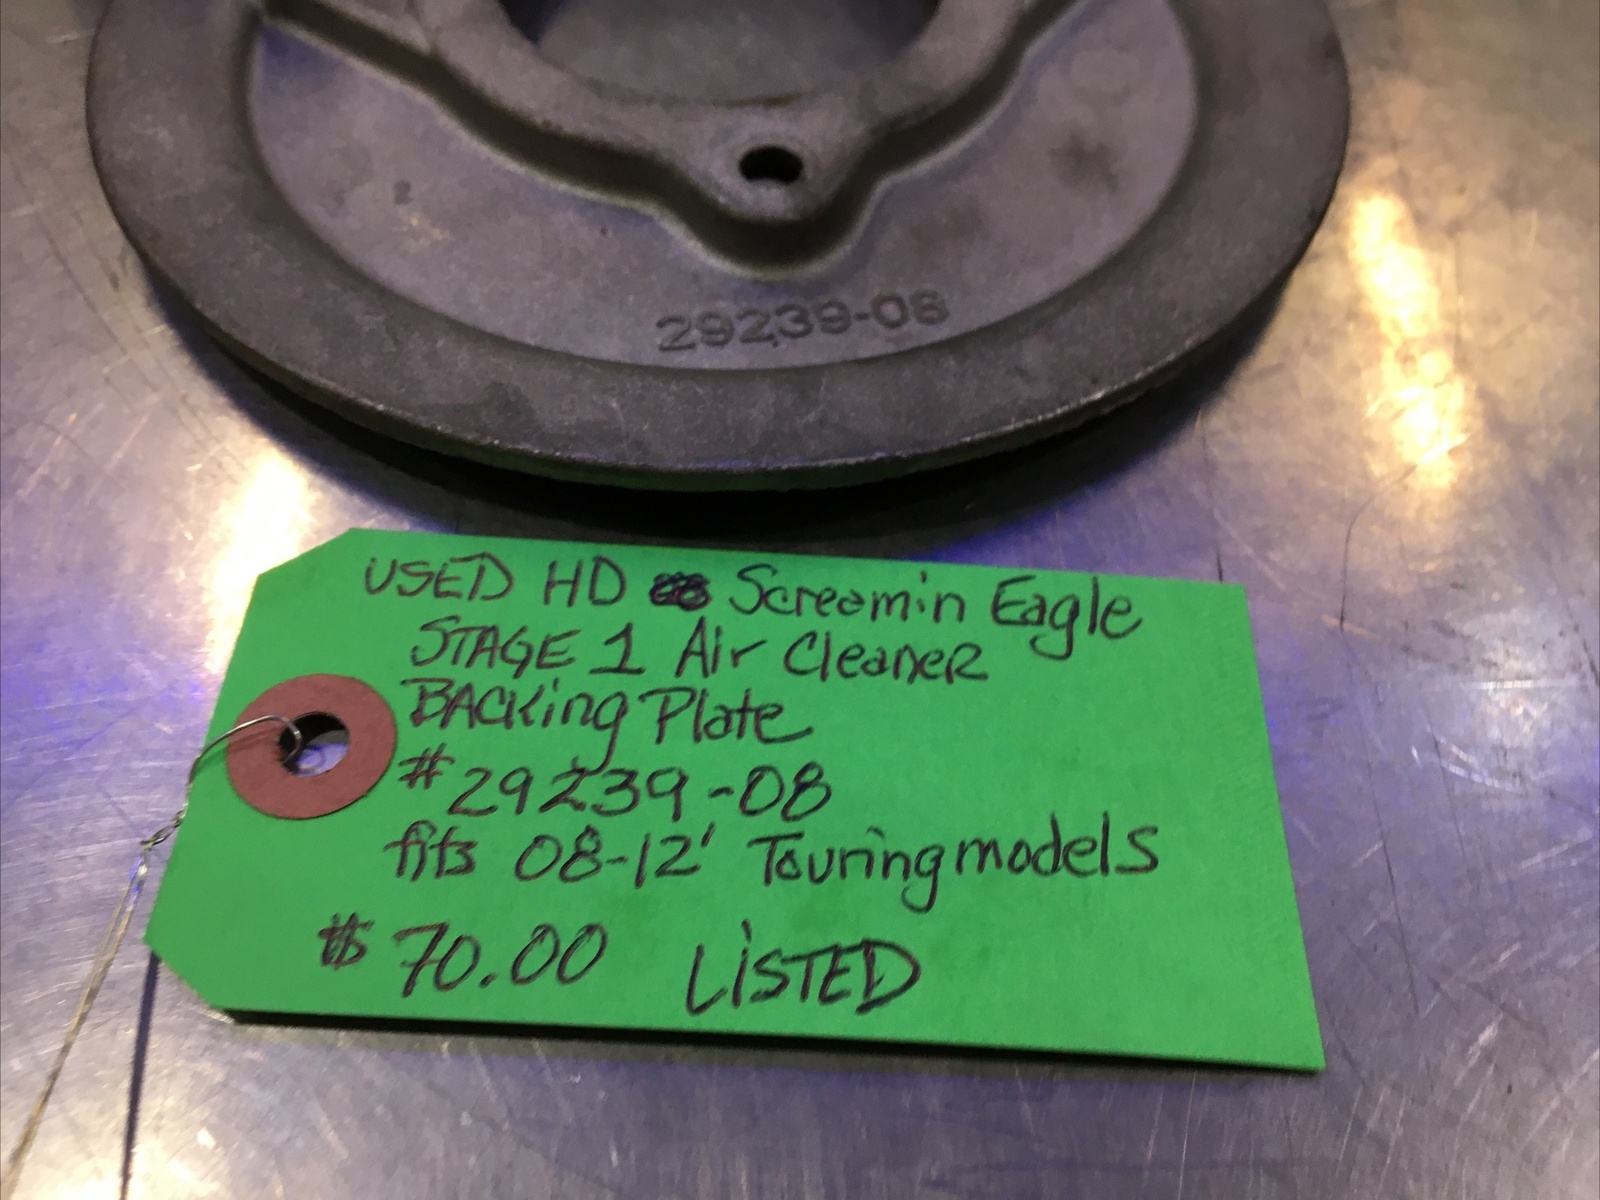 29239-08
USED HD Screamin Eagle
STAGE 1 Air Cleaner
BACKing Plate
#29239-08
fits 08-12' Touring models
$70.00 LiSTED